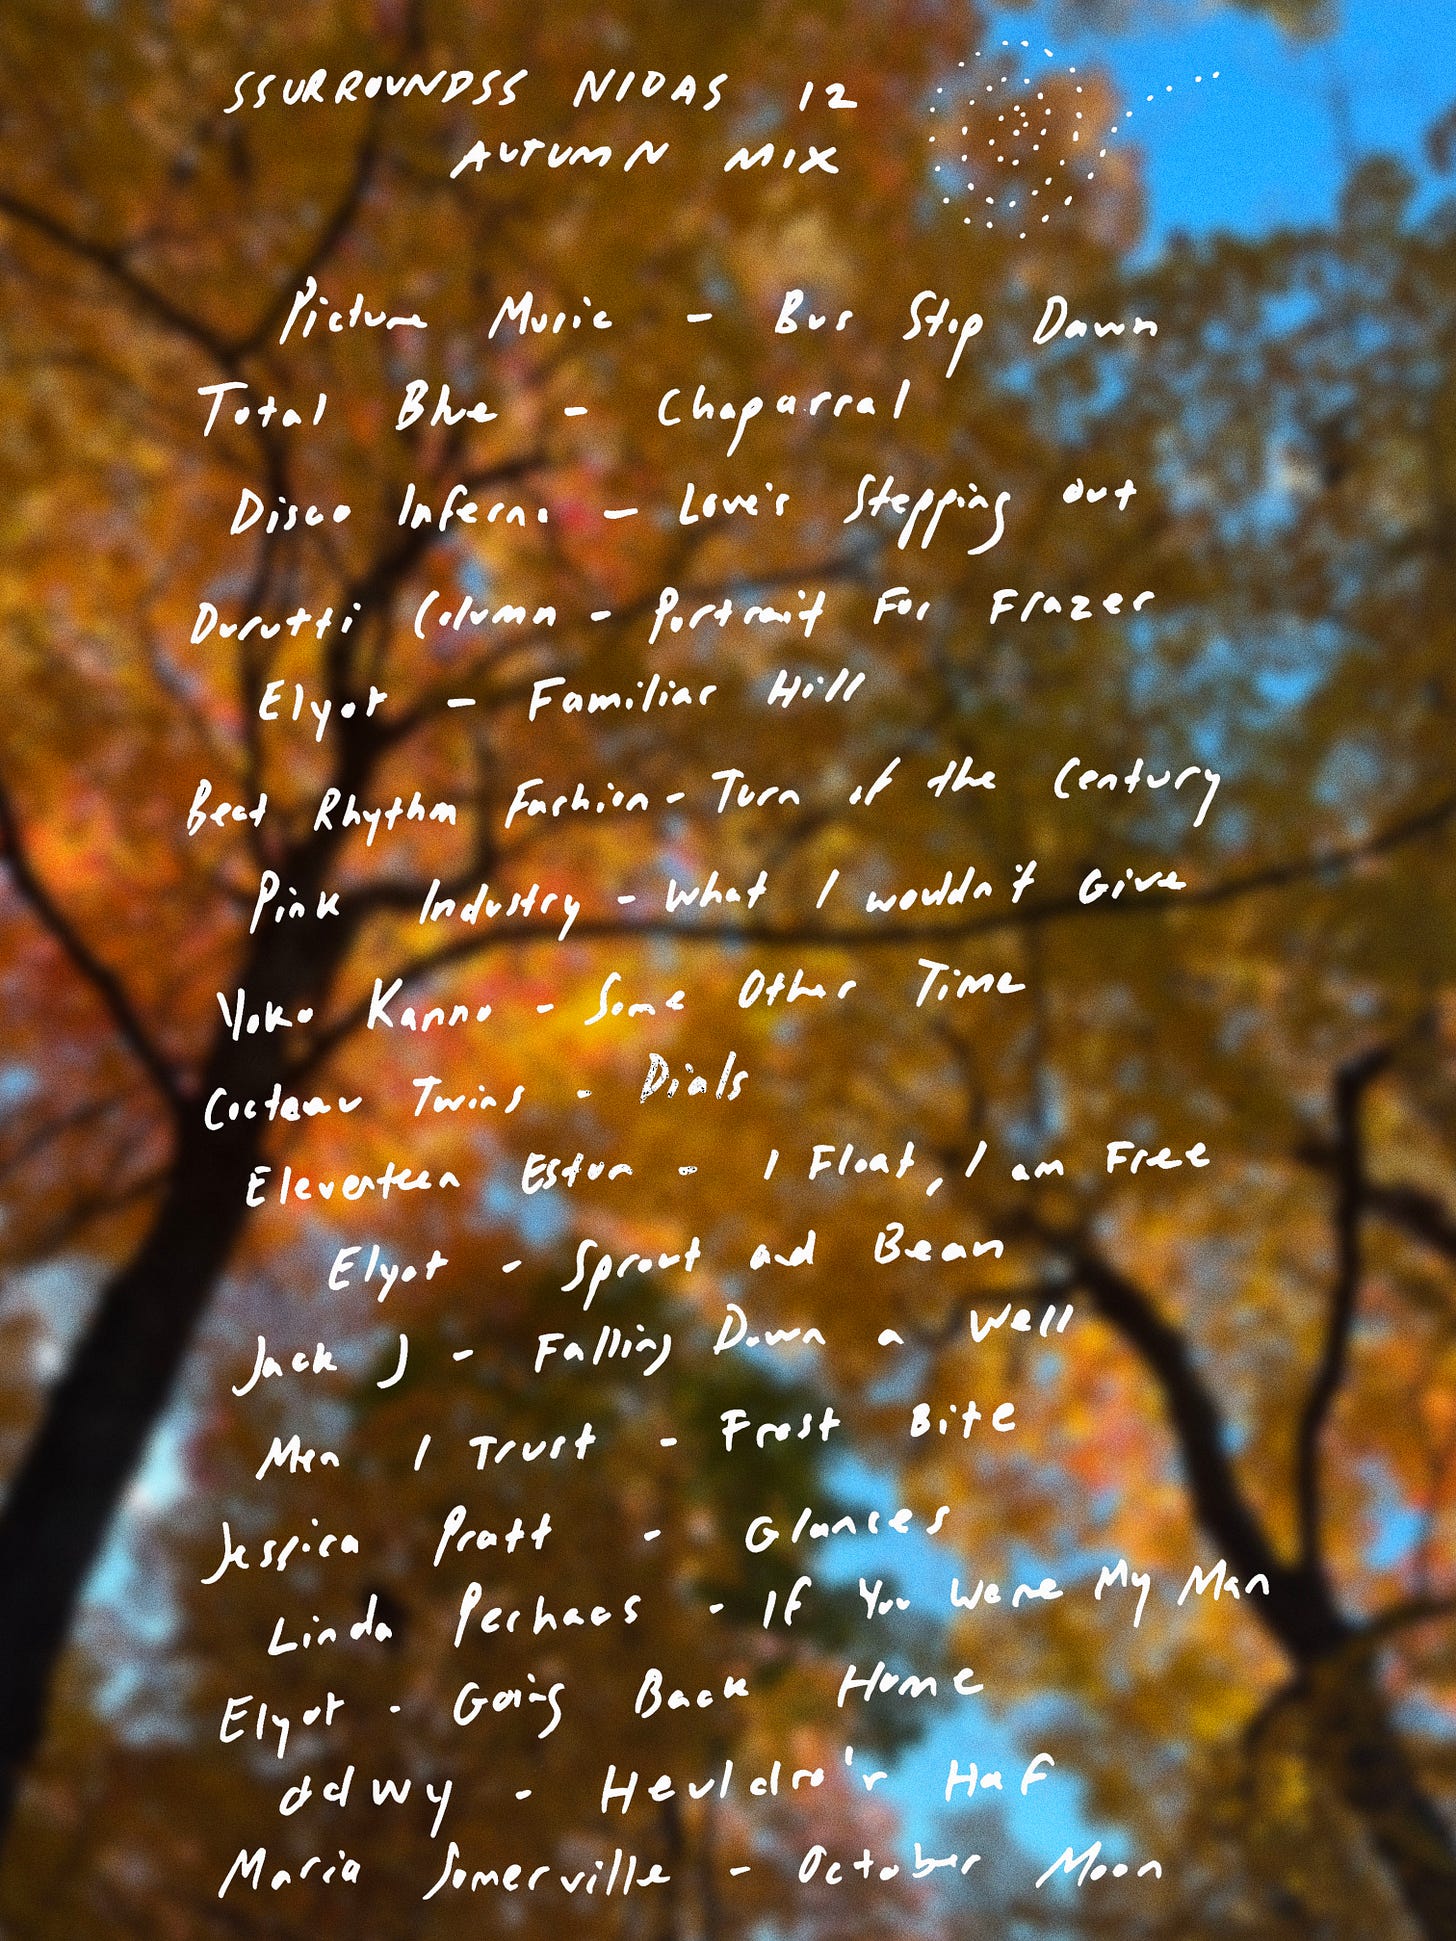 SSURROUNDSS NIDAS 12
AUTUMN MIX
Picture Music - Bus Stop Dawn
Total Blue - Chaparral
Disco Inferno - Love's Stepping out
Durutti Column - Portrait For Frazer
Elyot - Familiar Hill
Beat Rhythm Fashion - Turn of the Century
Pink Industry - What I wouldn't Give
Yoko Kanno - Some Other Time
Cocteau Twins - Dials
Eleventeen Eston - I Float, I am Free
Elyot - Sprout and Bean
Jack J - Falling Down a Well
Men I Trust - Frost Bite
Jessica Pratt - Glances
Linda Perhacs - If You Were My Man
Elyot - Going Back Home
ddwy - Heuldro'r Haf
Maria Somerville - October Moon